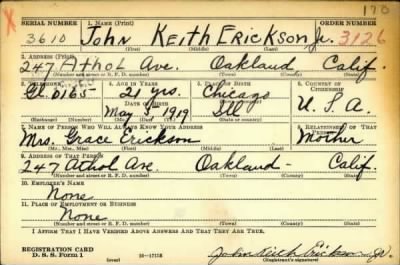 170
X
SERIAL NUMBER 1. NAME (Print) ORDER NUMBER
3610 John Keith Erickson Jr. 3126
(First) (Middle) (Last)
2. ADDRESS (Print)
247 Athol Ave. Oakland Calif.
(Number and street or R. F. D. number) (Town) (County) (State)
3. TELEPHONE 4. AGE IN YEARS 5. PLACE OF BIRTH 6. COUNTRY OF CITIZENSHIP
Gl. 0165 21 yrs. Chicago
DATE OF BIRTH
May 1919 Ill U.S.A.
(Exchange) (Number) (Mo.) (Day) (Yr.) (State or country)
7. NAME OF PERSON WHO WILL ALWAYS KNOW YOUR ADDRESS 8. RELATIONSHIP OF THAT PERSON
Mrs. Grace Erickson Mother
(Mr., Mrs., Miss) (First) (Middle) (Last)
9. ADDRESS OF THAT PERSON
247 Athol Ave. Oakland - Calif.
(Number and street or R. F. D. number) (Town) (County) (State)
10. EMPLOYER'S NAME
None
11. PLACE OF EMPLOYMENT OR BUSINESS
None
(Number and street or R. F. D. number) (Town) (County) (State)
I AFFIRM THAT I HAVE VERIFIED ABOVE ANSWERS AND THAT THEY ARE TRUE.
REGISTRATION CARD
D. S. S. Form 1 (over) 16-17105 John Keith Erickson Jr.
(Registrant's signature)